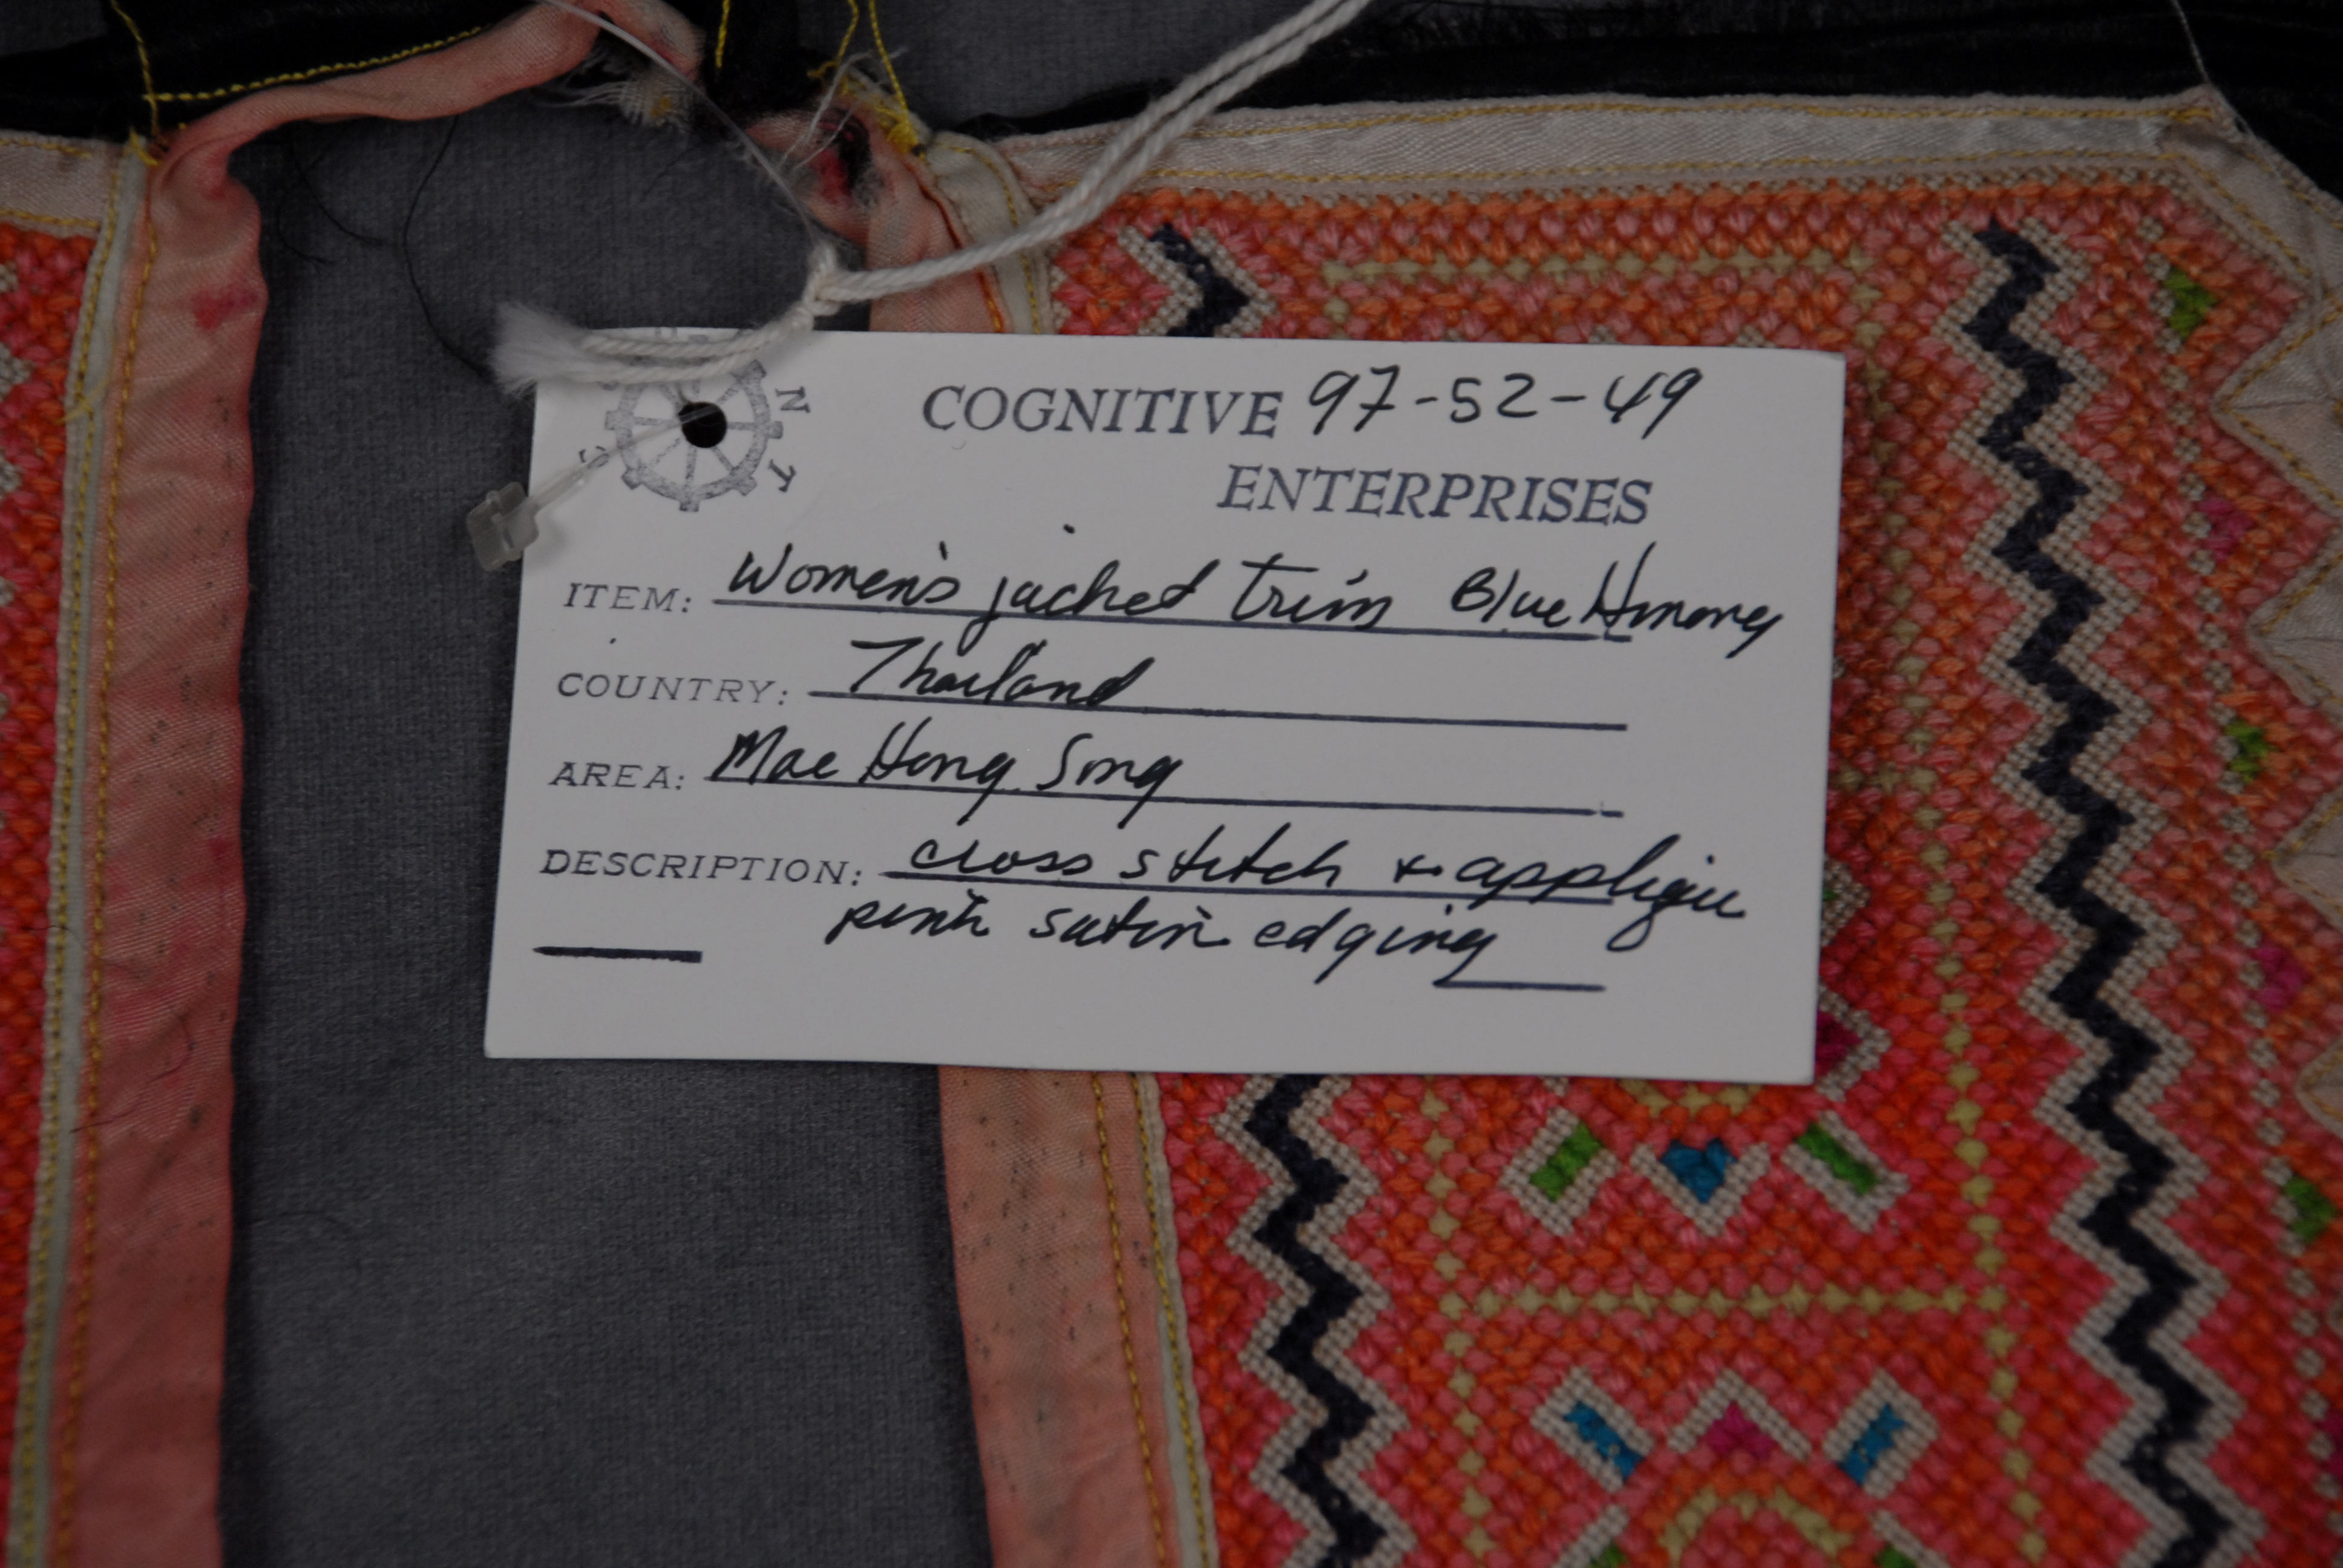 COGNITIVE 97-52-49
ENTERPRISES
ITEM: Women's jacket trim Blue Hmong
COUNTRY: Thailand
AREA: Mae Hong Song
DESCRIPTION: cross stitch + applique
pink satin edging